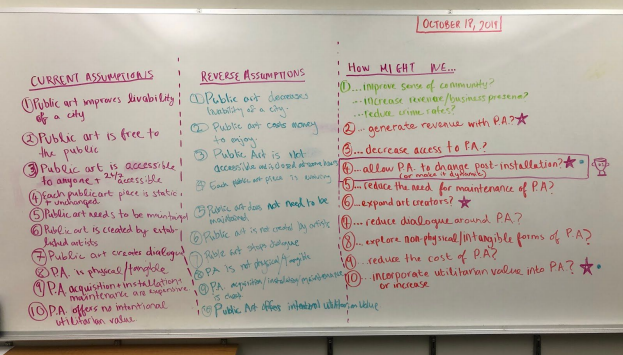 OCTOBER 18, 2019
CURRENT ASSUMPTIONS
① Public art improves livability
of a city
② Public art is free to
the public
③ Public art is accessible
to anyone + 24/7 accessible
④ Each public art place is static +
unchanged
⑤ Public art needs to be maintained
⑥ Public art is created by estab-
lished artists
⑦ Public art creates dialogue
⑧ P.A. is physical/tangible
⑨ P.A. acquisition + installation +
maintenance are expensive
⑩ P.A. offers no intentional
utilitarian value.
REVERSE ASSUMPTIONS
① Public art decreases
livability of a city.
② Public art costs money
to enjoy.
③ Public Art is Not
accessible and closed at some hours
Each public art place is
⑤ Public art does not need to be
maintained
⑥ Public art is not created by artists
⑦ Public art stops dialogue
⑧ P.A. is not physical/tangible
⑨ P.A. acquisition/installation/maintenance
is cheap
Public Art offers intentional utilitarian value
HOW MIGHT WE...
① ...improve sense of community?
...increase revenue/business presence?
...reduce crime rates?
② ...generate revenue with P.A.?
③ ...decrease access to P.A.?
④ ...allow P.A. to change post-installation?
(or make it dynamic)
⑤ ...reduce the need for maintenance of P.A.?
⑥ ...expand art creators?
⑦ ...reduce dialogue around P.A.?
⑧ ...explore non-physical/intangible forms of P.A.?
⑨ ...reduce the cost of P.A.?
⑩ ...incorporate utilitarian value into P.A.?
or increase